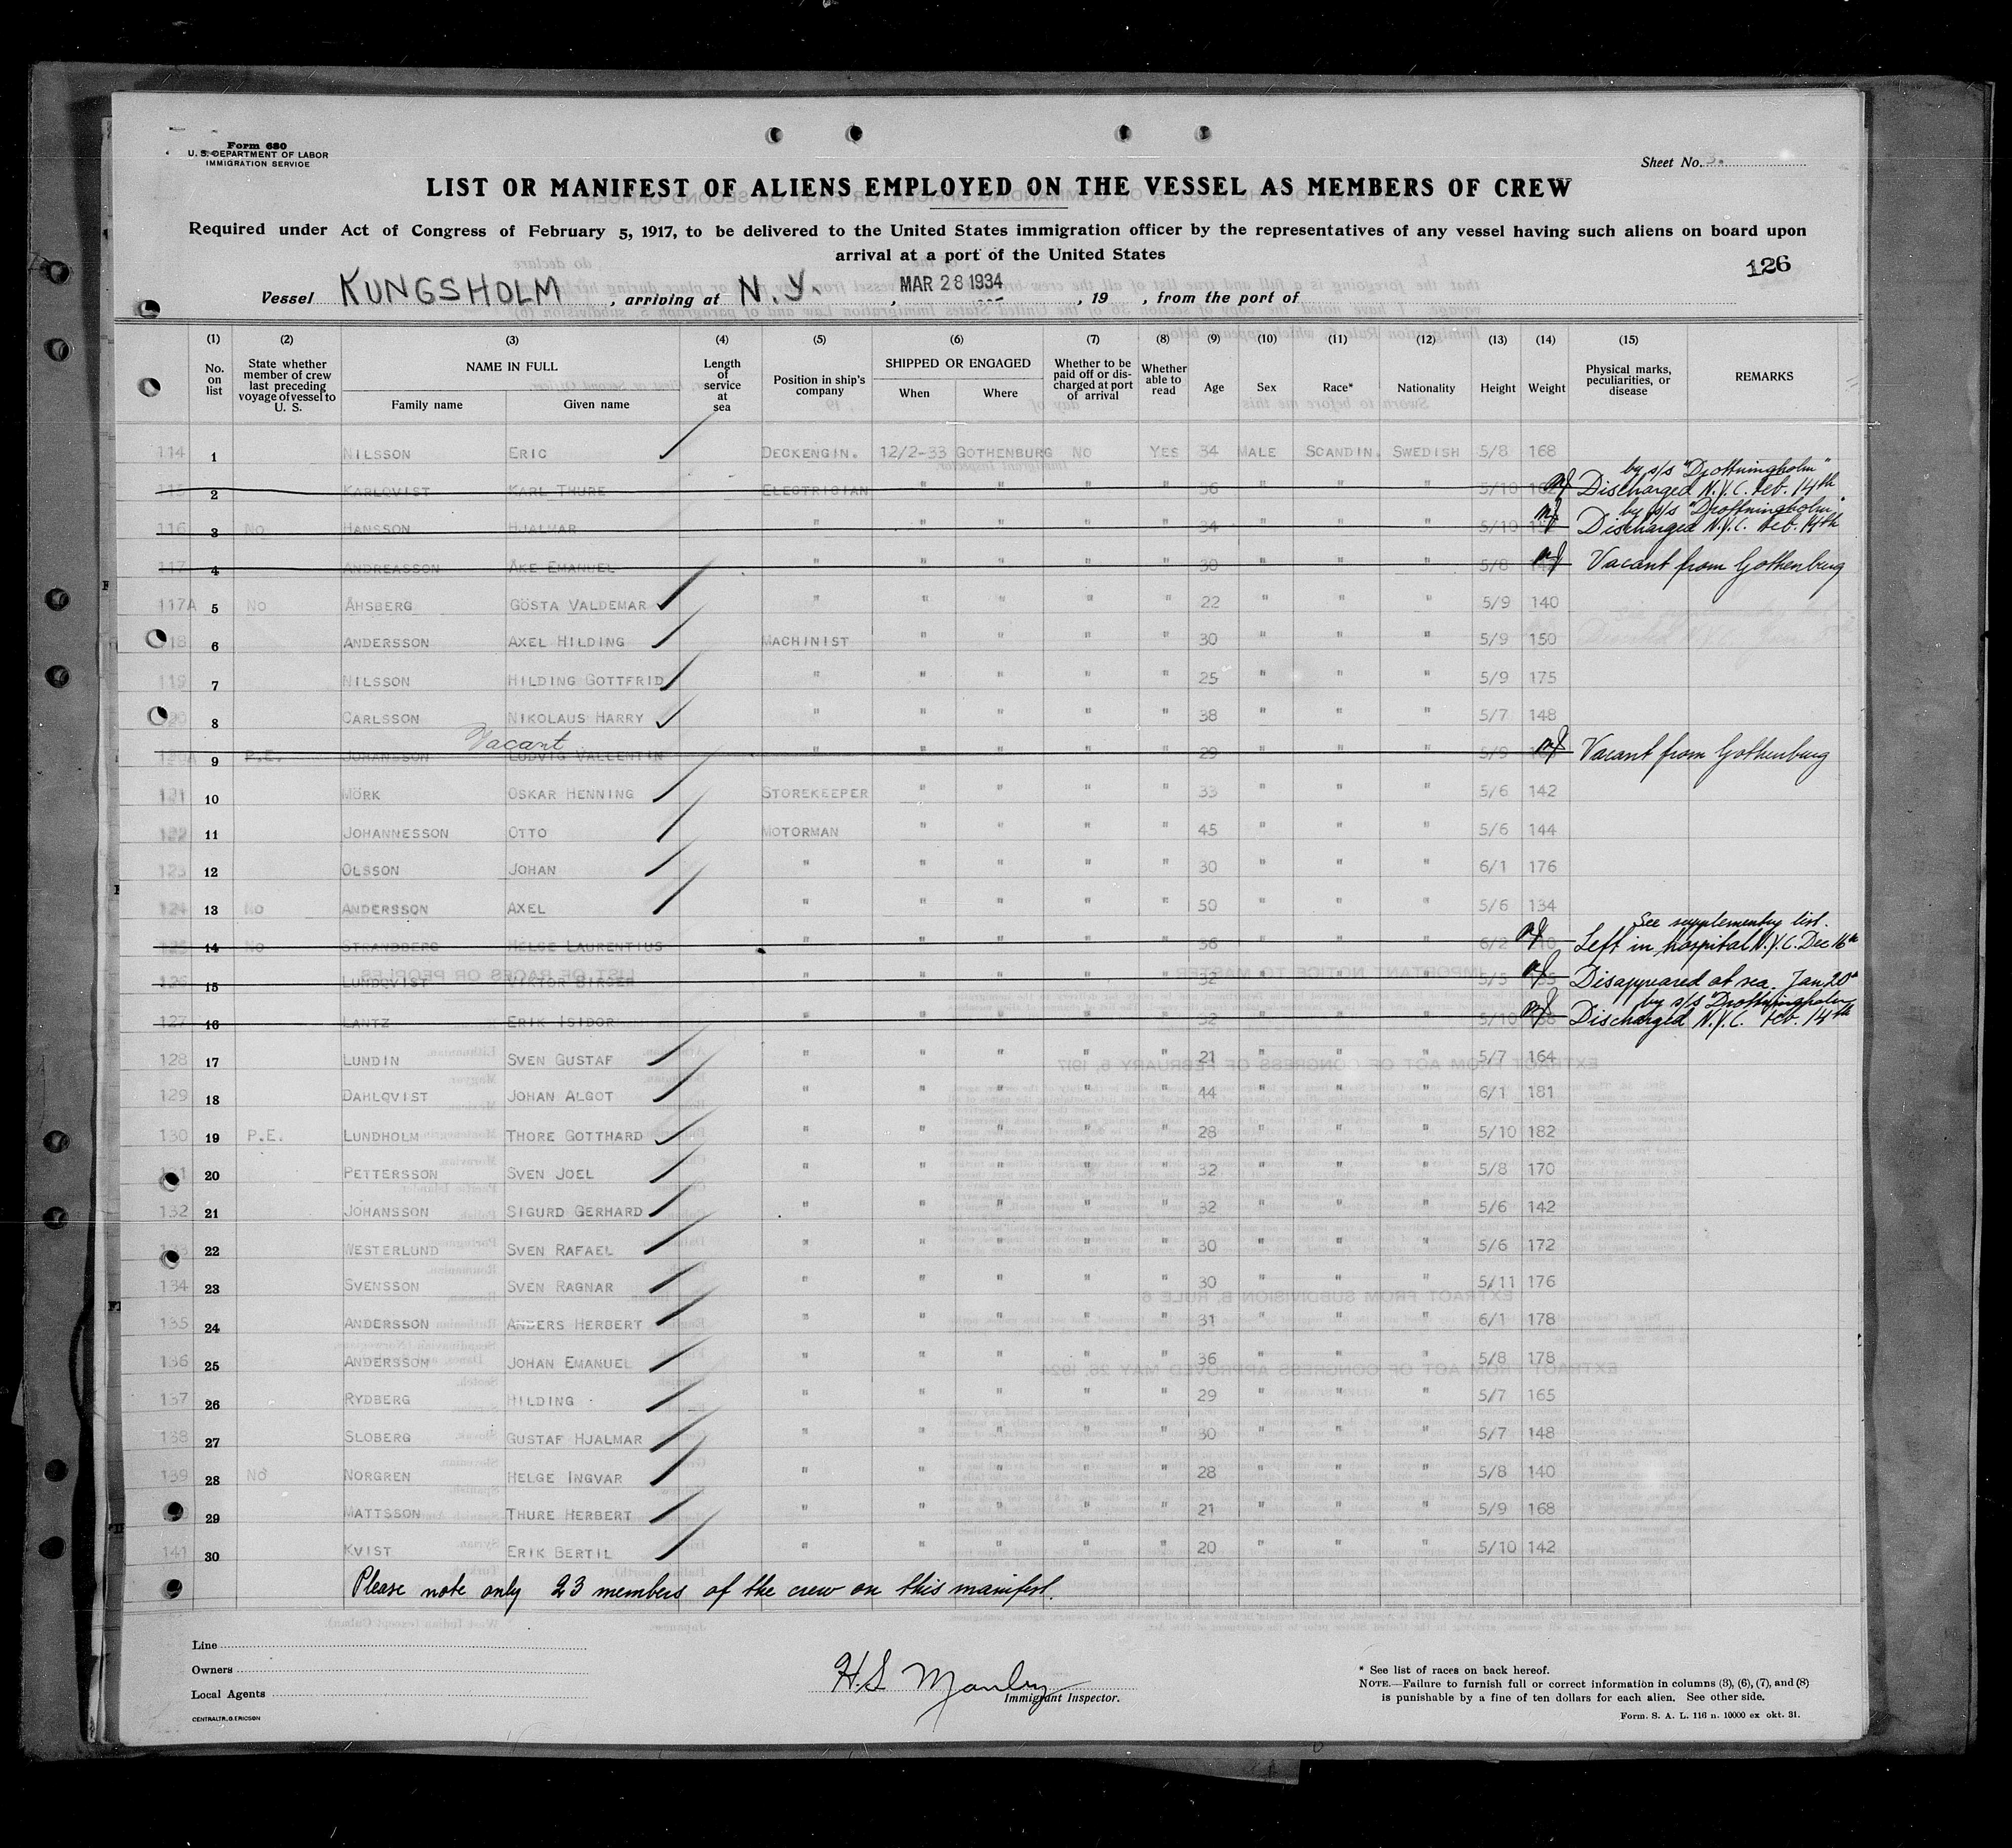 Form 680
U. S. DEPARTMENT OF LABOR
IMMIGRATION SERVICE
Sheet No. 3.
LIST OR MANIFEST OF ALIENS EMPLOYED ON THE VESSEL AS MEMBERS OF CREW
Required under Act of Congress of February 5, 1917, to be delivered to the United States immigration officer by the representatives of any vessel having such aliens on board upon
arrival at a port of the United States
126
Vessel KUNGSHOLM, arriving at N.Y., MAR 28 1934, 19 , from the port of
(1) (2) (3) (4) (5) (6) (7) (8) (9) (10) (11) (12) (13) (14) (15)
No. on list State whether member of crew last preceding voyage of vessel to U. S. NAME IN FULL Family name Given name Length of service at sea Position in ship's company SHIPPED OR ENGAGED When Where Whether to be paid off or discharged at port of arrival Whether able to read Age Sex Race* Nationality Height Weight Physical marks, peculiarities, or disease REMARKS
114 1 NILSSON ERIC DECKENGIN. 12/2-33 GOTHENBURG NO YES 34 MALE SCANDIN. SWEDISH 5/8 168
by s/s "Drottningholm"
115 2 KARLQVIST KARL THURE ELECTRICIAN " " " " 36 " " " 5/10 Discharged N.Y.C. Feb. 14th
by s/s "Drottningholm"
116 3 NO HANSSON HJALMAR " " " " " 34 " " " 5/10 Discharged N.Y.C. Feb. 14th
117 4 ANDREASSON ÅKE EMANUEL " " " " " 30 " " " 5/8 Vacant from Gothenburg
117A 5 NO ÅHSBERG GÖSTA VALDEMAR " " " " " 22 " " " 5/9 140
118 6 ANDERSSON AXEL HILDING MACHINIST " " " " 30 " " " 5/9 150
119 7 NILSSON HILDING GOTTFRID " " " " " 25 " " " 5/9 175
8 CARLSSON NIKOLAUS HARRY " " " " " 38 " " " 5/7 148
Vacant
9 P.E. JOHANSSON LUDVIG VALLENTIN " " " " " 29 " " " 5/9 Vacant from Gothenburg
121 10 MÖRK OSKAR HENNING STOREKEEPER " " " " 33 " " " 5/6 142
122 11 JOHANNESSON OTTO MOTORMAN " " " " 45 " " " 5/6 144
123 12 OLSSON JOHAN " " " " " 30 " " " 6/1 176
124 13 NO ANDERSSON AXEL " " " " " 50 " " " 5/6 134
See supplementry list.
125 14 NO STRANDBERG HELGE LAURENTIUS " " " " " 36 " " " 6/2 Left in hospital N.Y.C. Dec 16th
126 15 LUNDQVIST VIKTOR BIRGER " " " " " 32 " " " 5/5 Disappeared at sea. Jan 20th
by s/s "Drottningholm
127 16 LANTZ ERIK ISIDOR " " " " " 32 " " " 5/10 Discharged N.Y.C. Feb. 14th
128 17 LUNDIN SVEN GUSTAF " " " " " 21 " " " 5/7 164
129 18 DAHLQVIST JOHAN ALGOT " " " " " 44 " " " 6/1 181
130 19 P.E. LUNDHOLM THORE GOTTHARD " " " " " 28 " " " 5/10 182
20 PETTERSSON SVEN JOEL " " " " " 32 " " " 5/8 170
132 21 JOHANSSON SIGURD GERHARD " " " " " 32 " " " 5/6 142
22 WESTERLUND SVEN RAFAEL " " " " " 30 " " " 5/6 172
134 23 SVENSSON SVEN RAGNAR " " " " " 30 " " " 5/11 176
135 24 ANDERSSON ANDERS HERBERT " " " " " 31 " " " 6/1 178
136 25 ANDERSSON JOHAN EMANUEL " " " " " 36 " " " 5/8 178
137 26 RYDBERG HILDING " " " " " 29 " " " 5/7 165
138 27 SLOBERG GUSTAF HJALMAR " " " " " 30 " " " 5/7 148
139 28 NO NORGREN HELGE INGVAR " " " " " 28 " " " 5/8 140
29 MATTSSON THURE HERBERT " " " " " 21 " " " 5/9 168
141 30 KVIST ERIK BERTIL " " " " " 20 " " " 5/10 142
Please note only 23 members of the crew on this manifest.
Line
Owners
Local Agents
CENTRALTR. G. ERICSON
H.S. Manley
Immigrant Inspector.
* See list of races on back hereof.
NOTE.—Failure to furnish full or correct information in columns (3), (6), (7), and (8)
is punishable by a fine of ten dollars for each alien. See other side.
Form. S. A. L. 116 n. 10000 ex okt. 31.